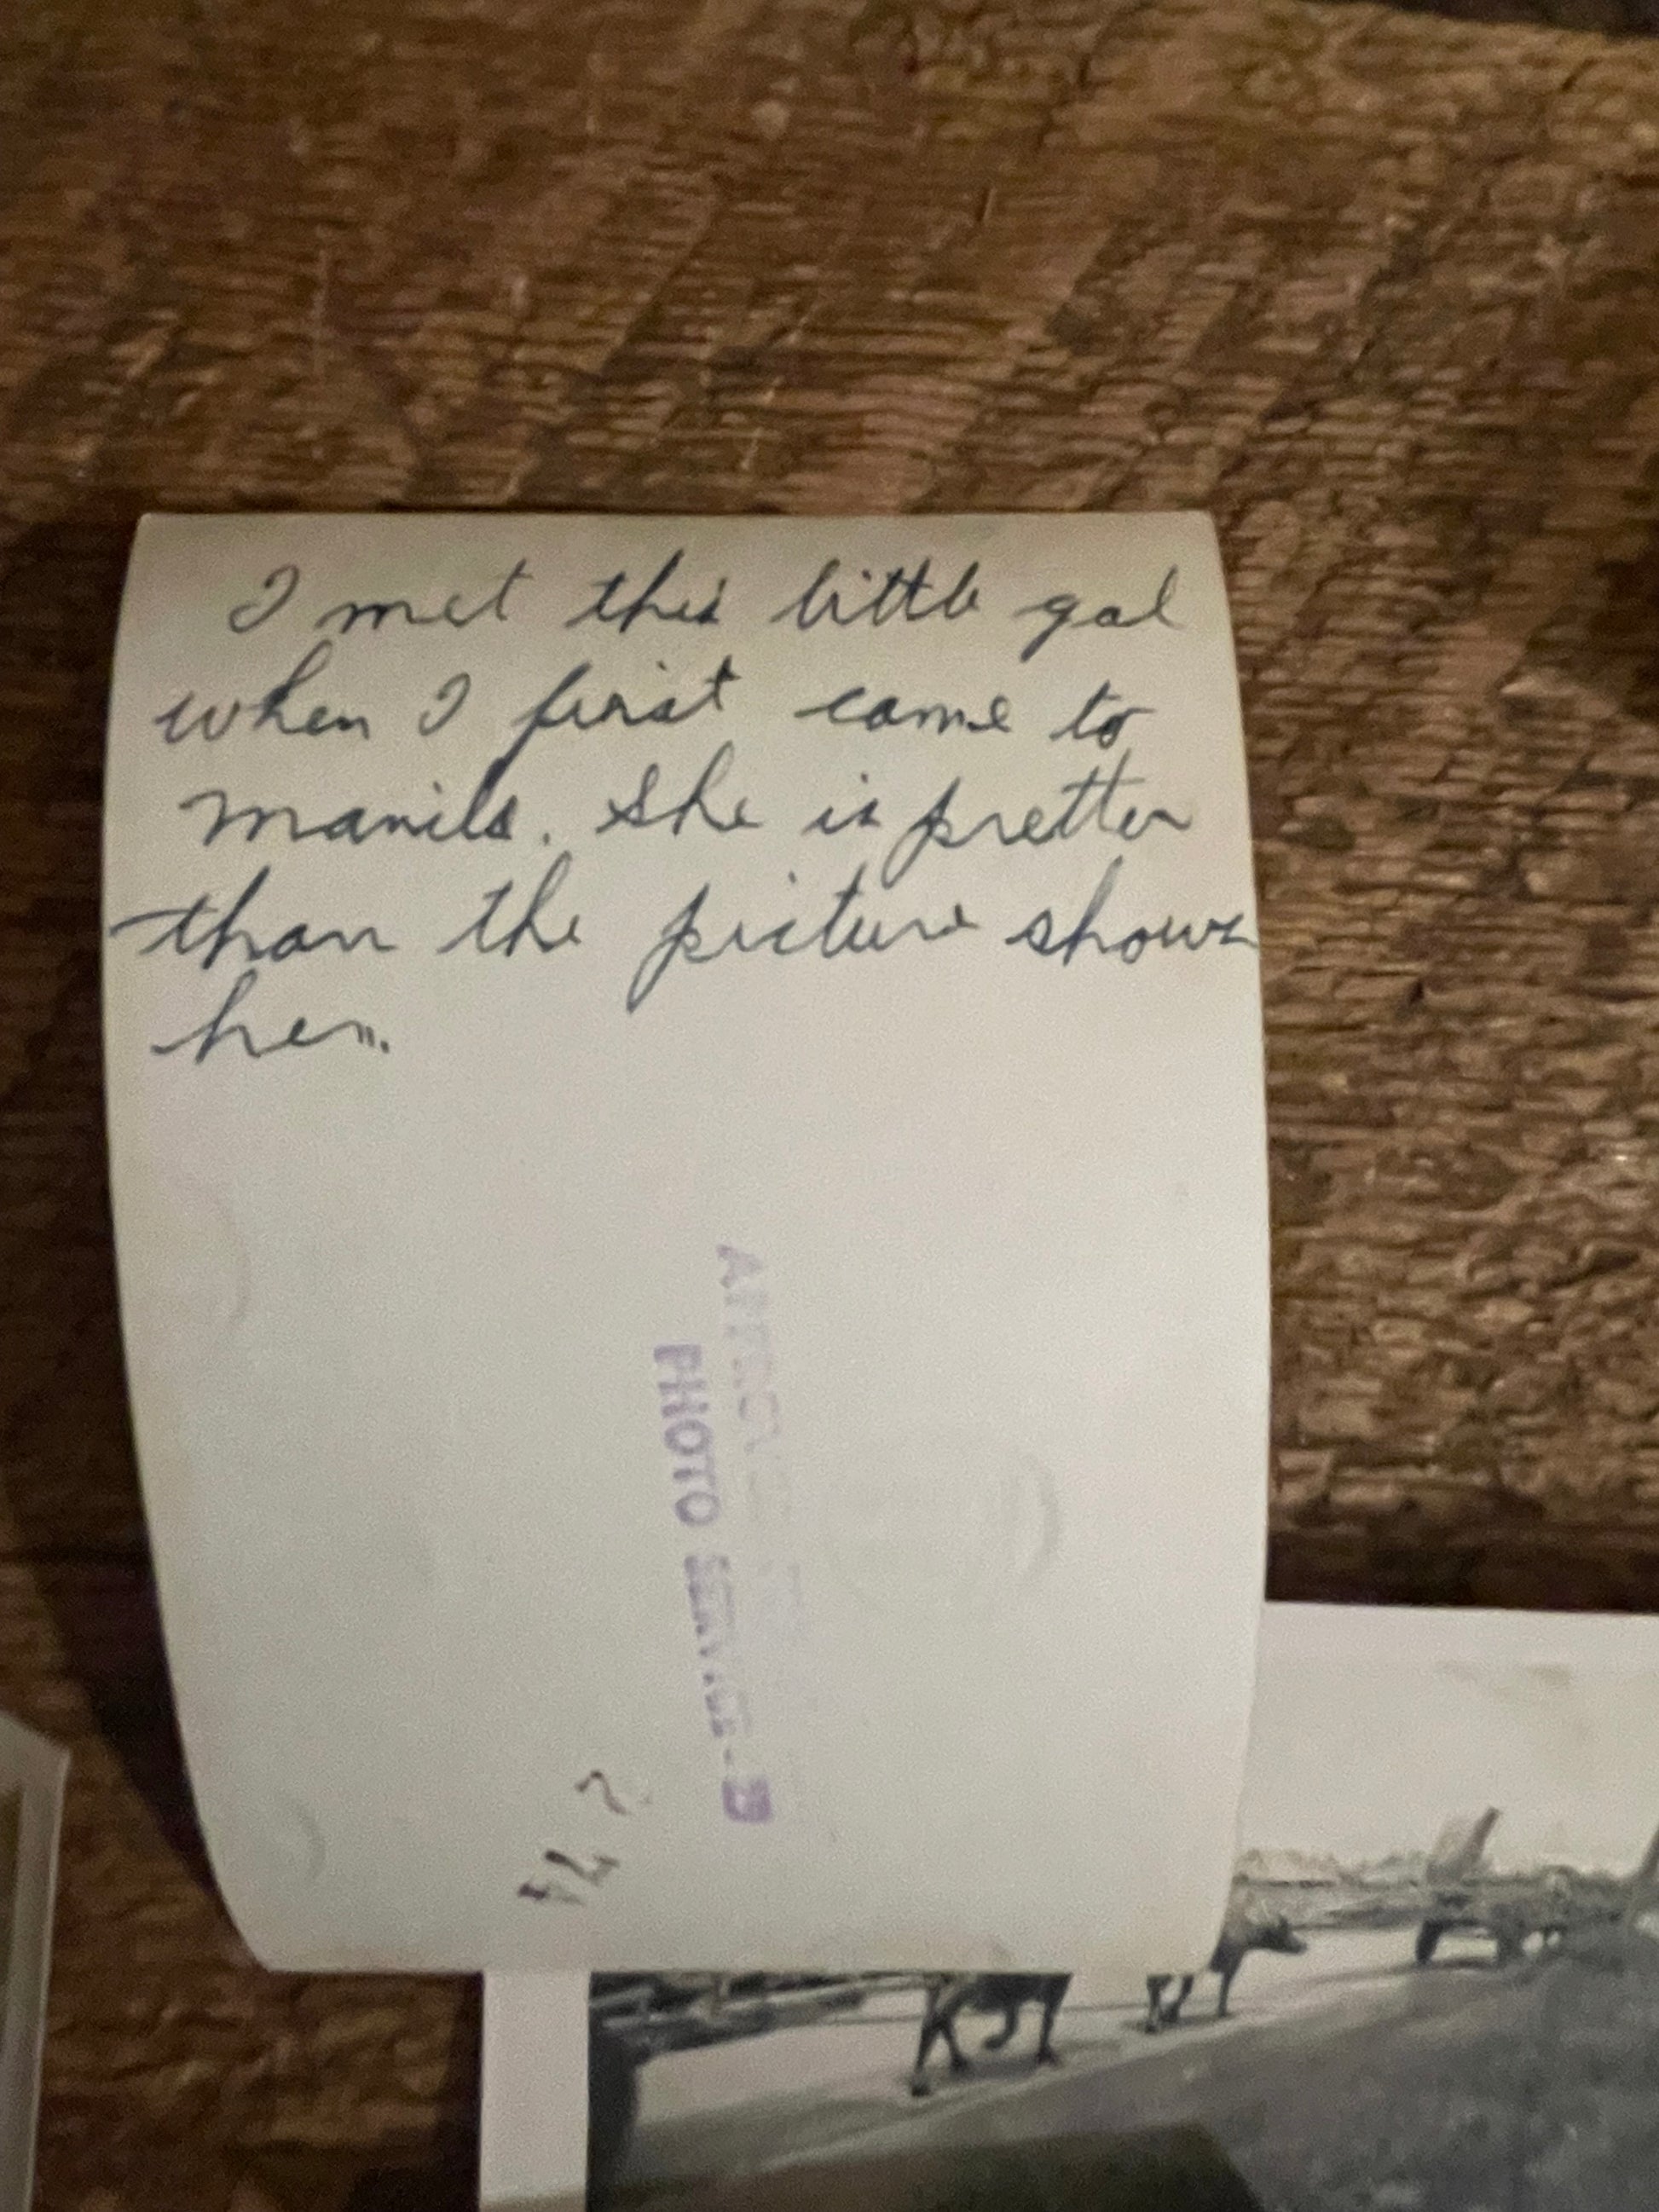 I met this little gal
when I first came to
manila. She is pretter
than the picture shows
her.
PHOTO SERVICE-B